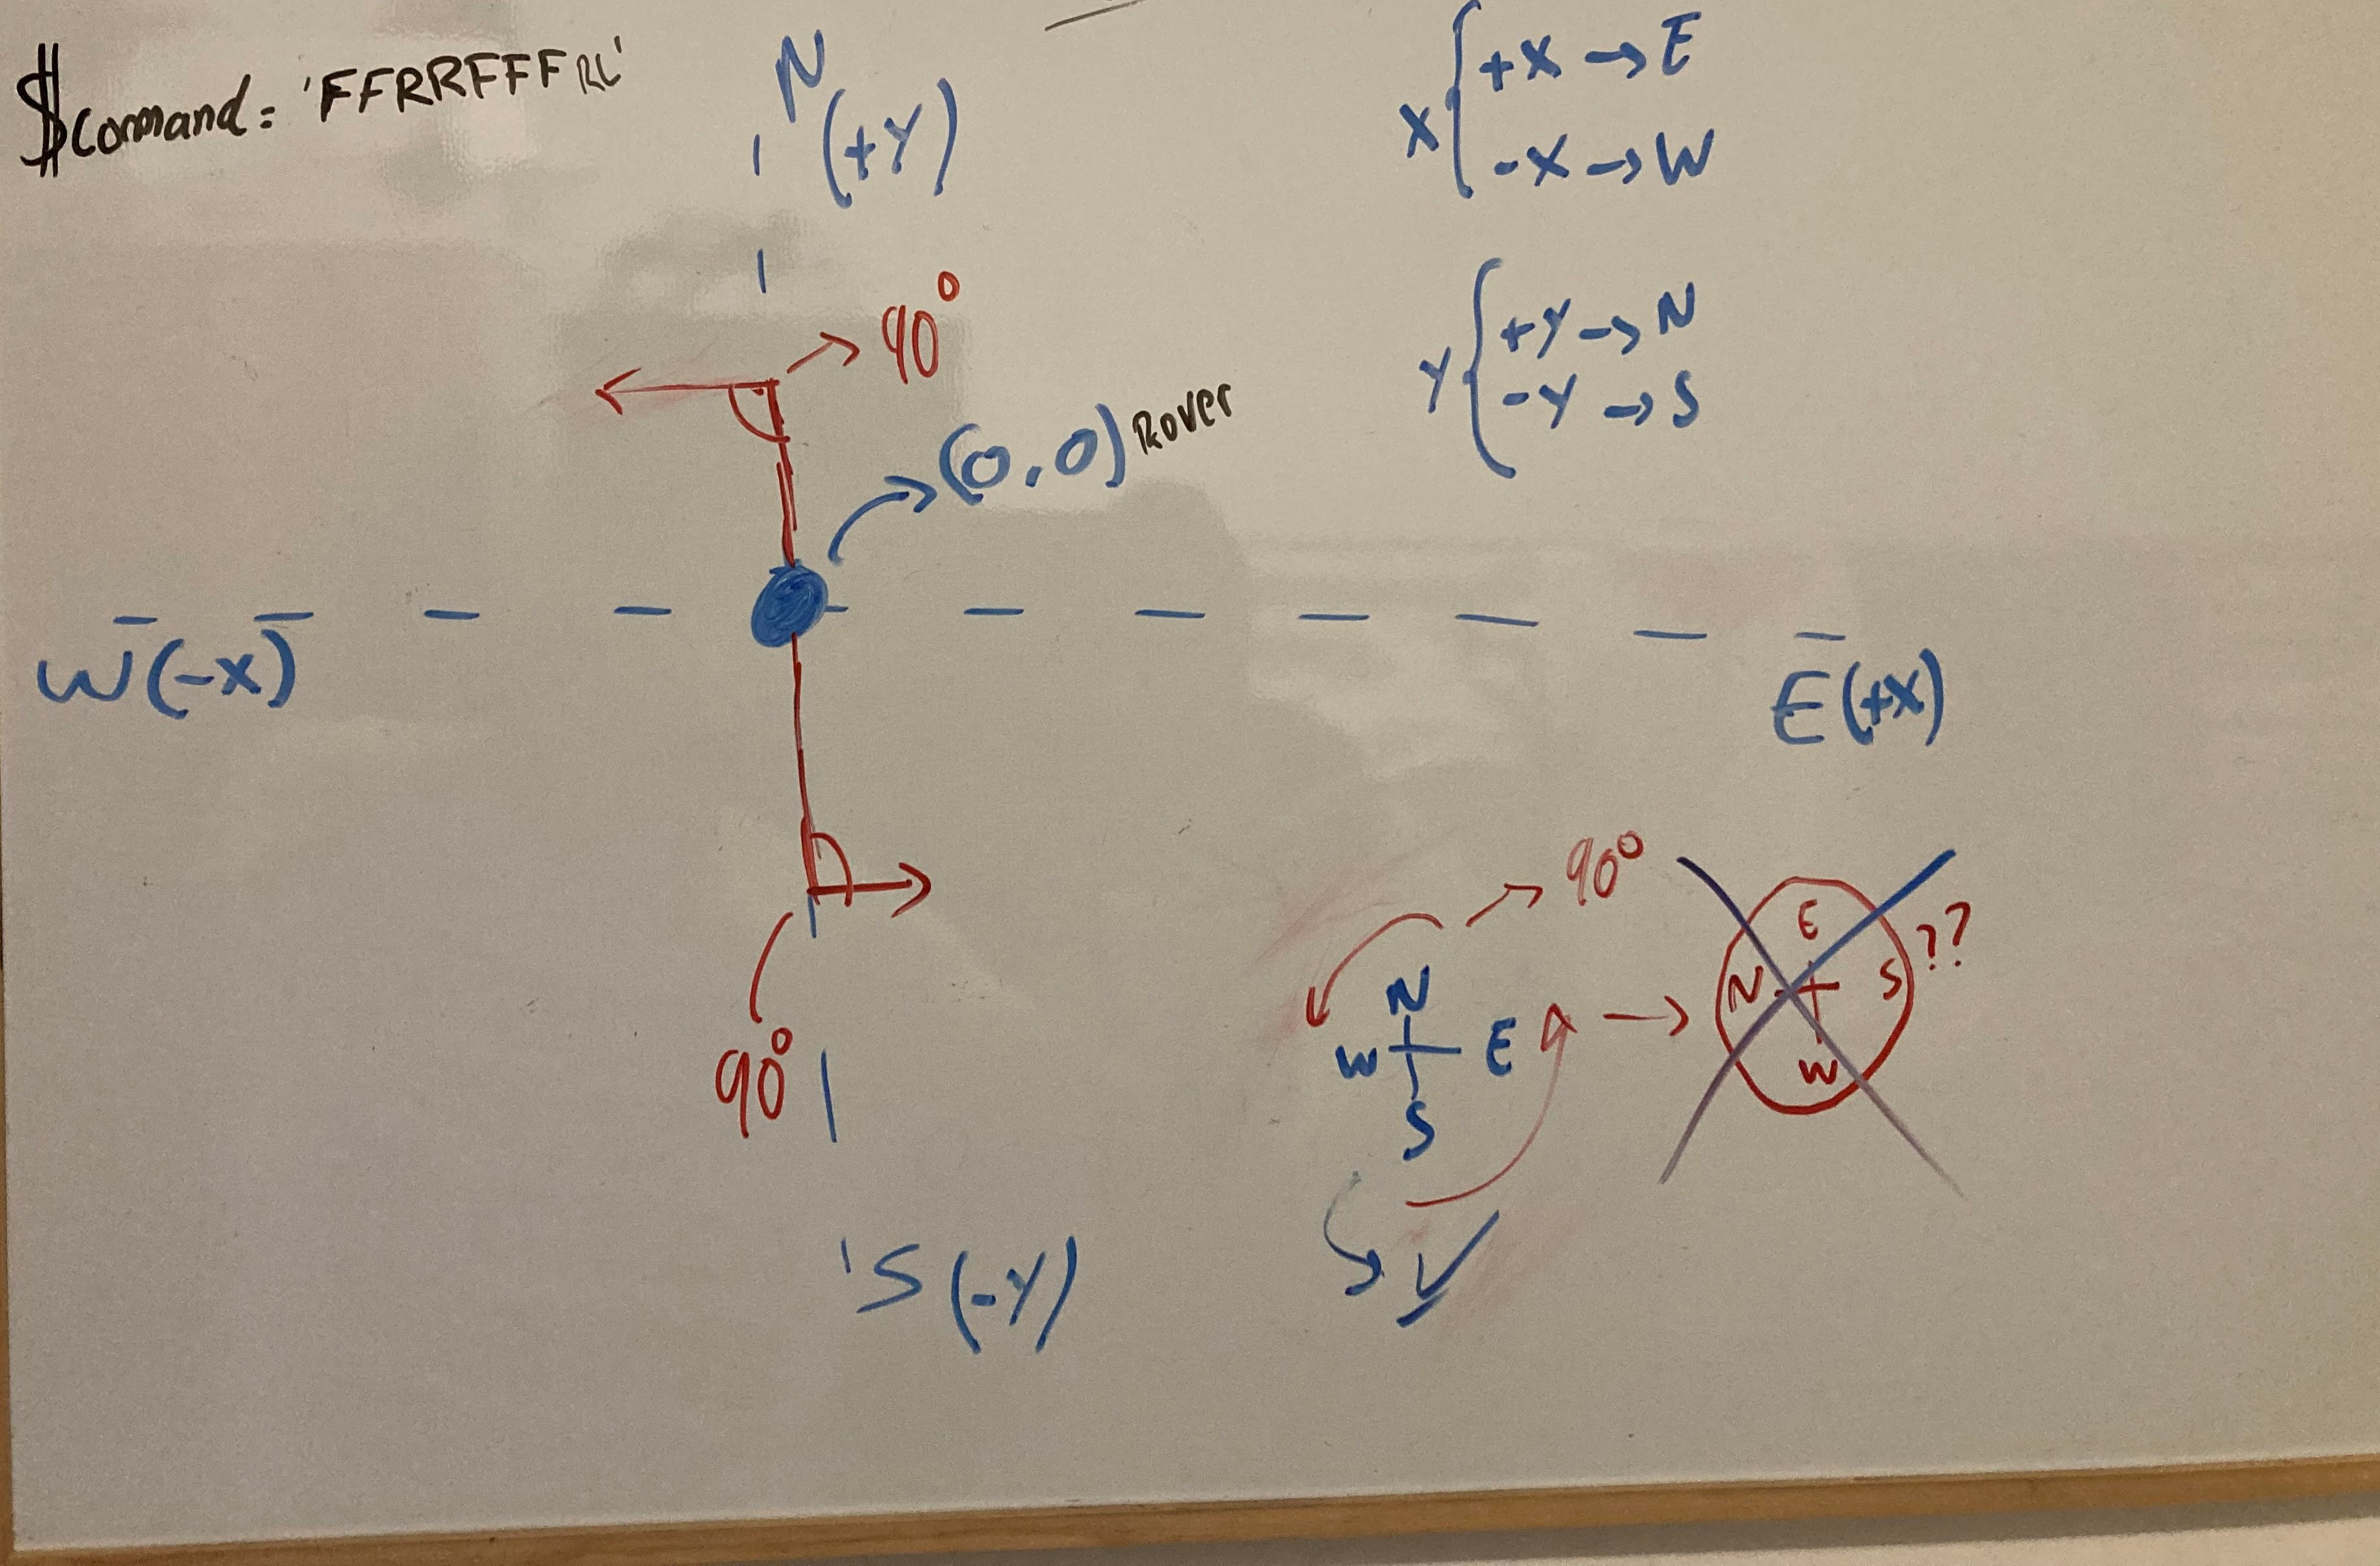 $Command = 'FFRRFFFRL'
N
(+Y)
X { +X → E
-X → W
Y { +Y → N
-Y → S
→ 90°
→ (0,0) Rover
W (-X)
E (+X)
90°
S (-Y)
→ 90°
N
W E
S
→ ✓
→
E
N S
W
??